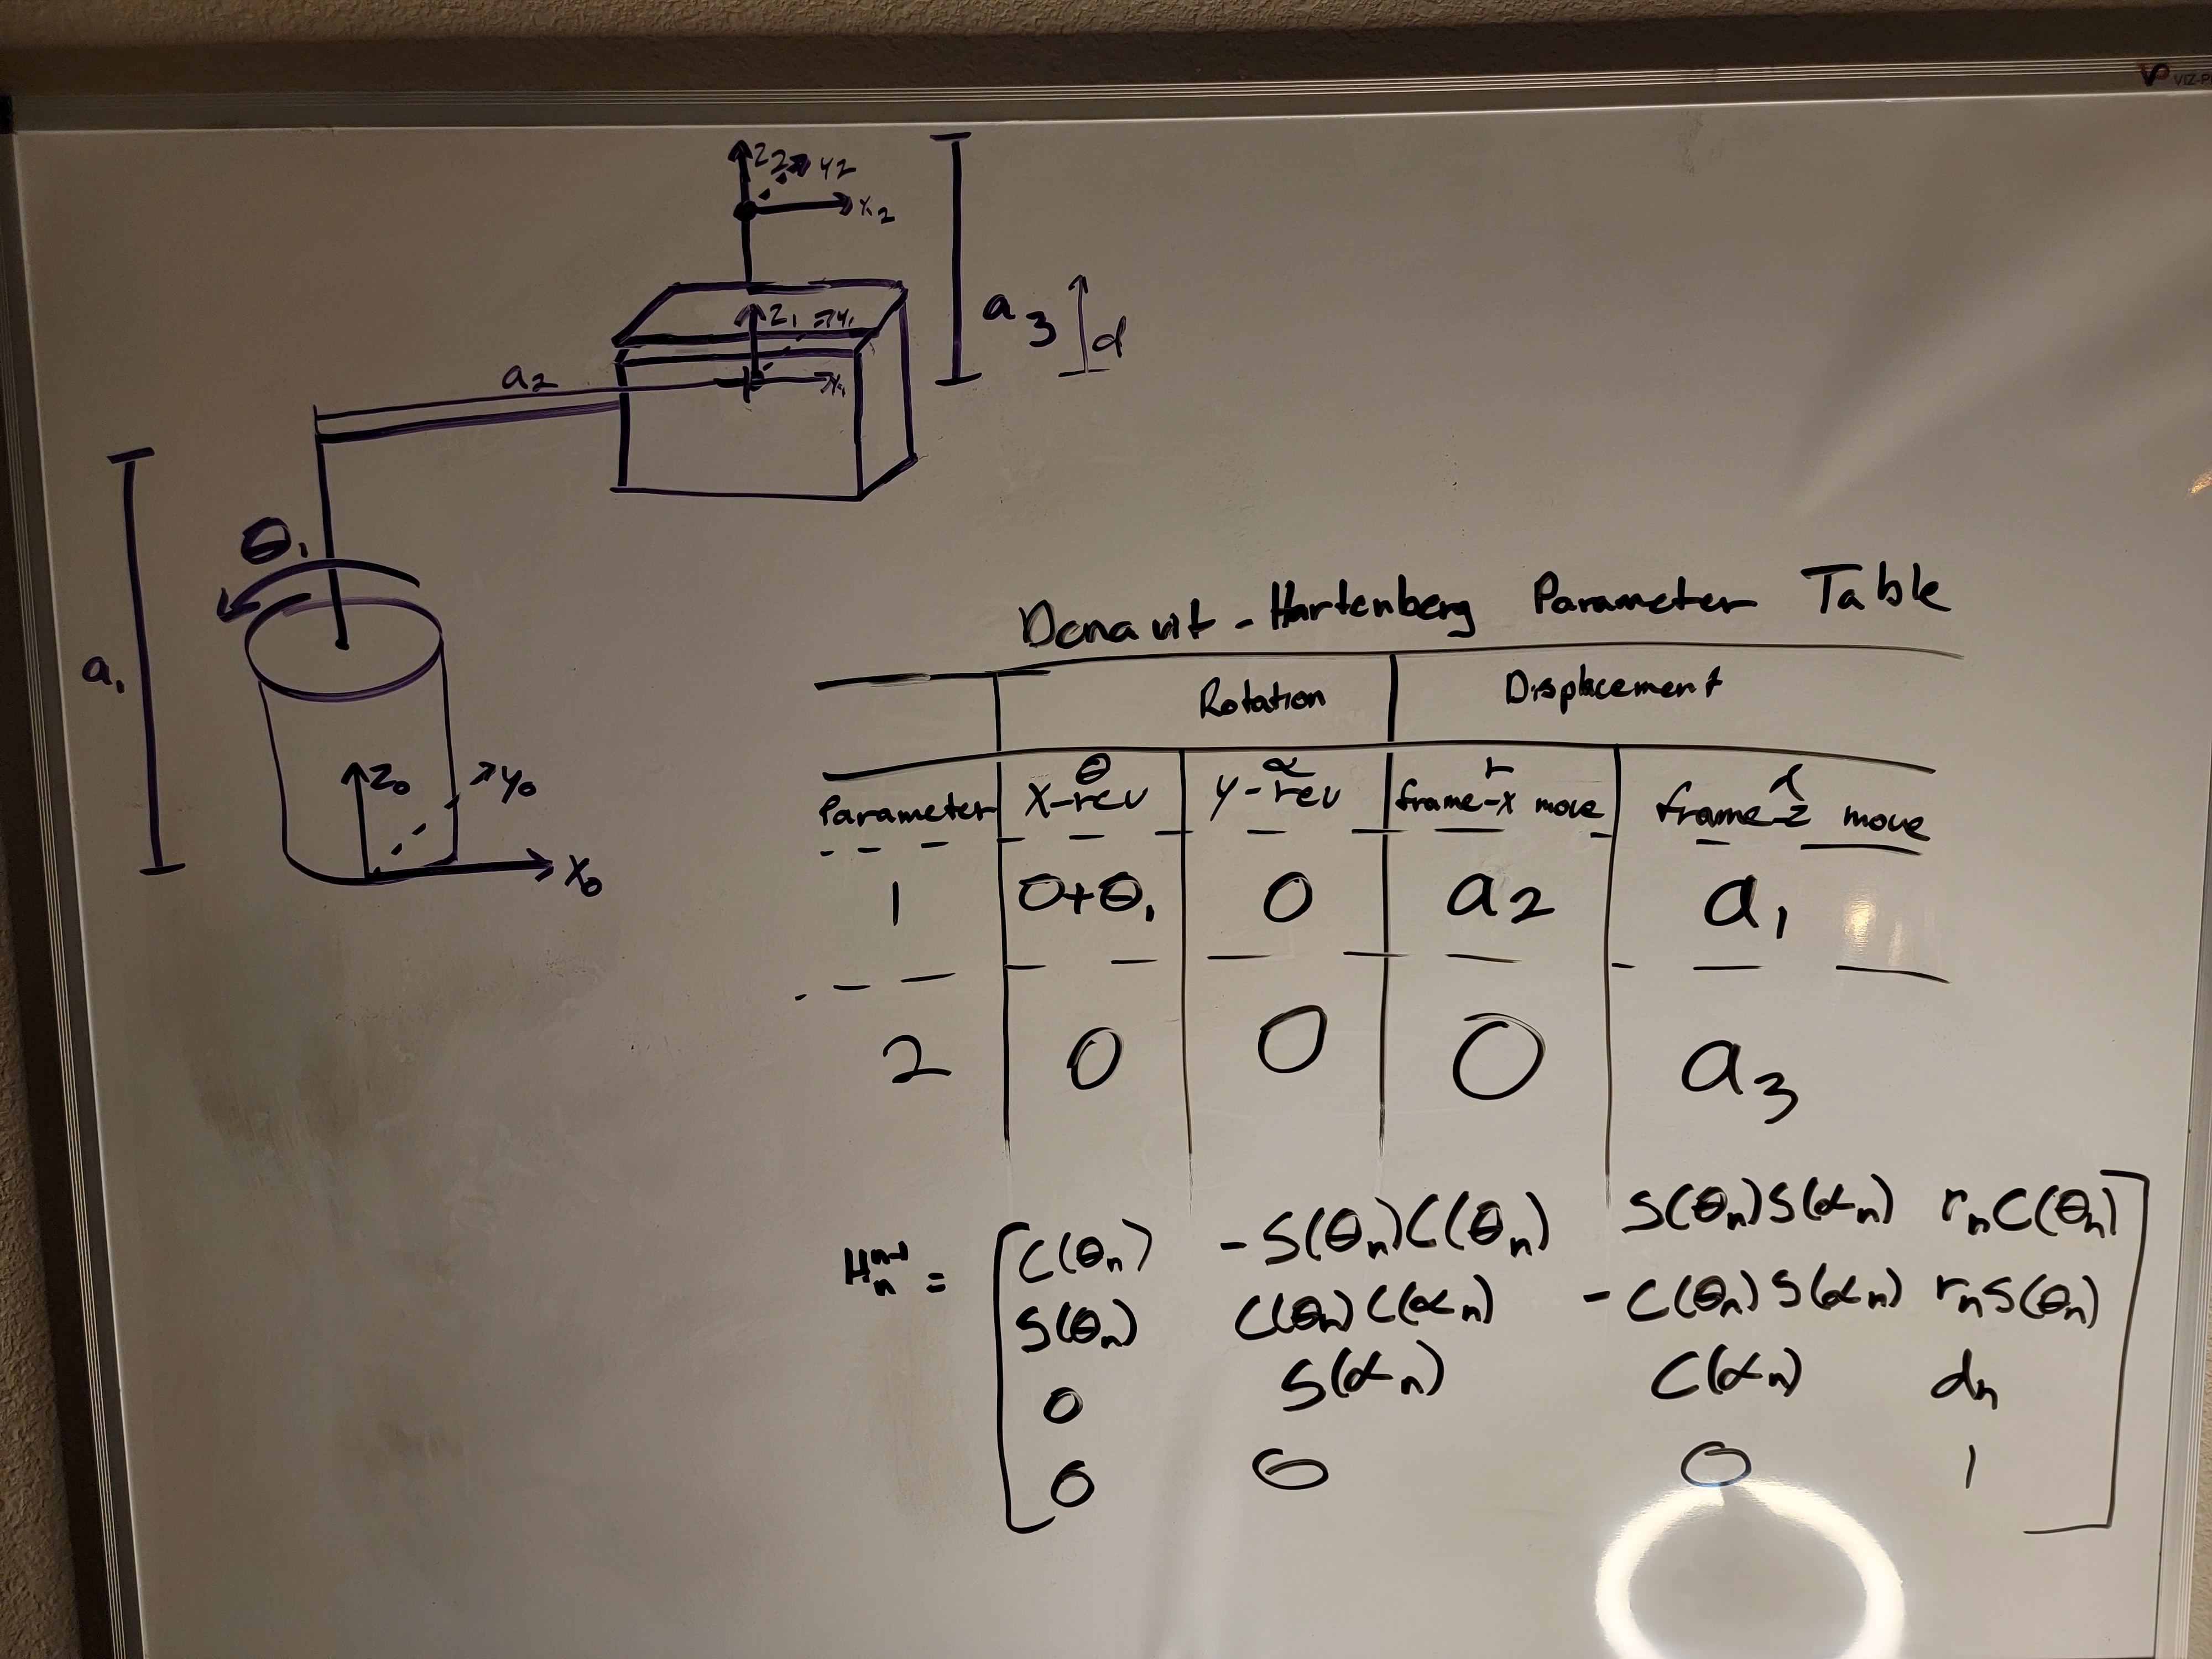 VIZ-P
z2
y2
x2
z1
y1
x1
a3
d
a2
θ1
a1
z0
y0
x0
Denavit-Hartenberg Parameter Table
Rotation Displacement
θ α r d
Parameter X-rev y-rev frame-x move frame-z move
1 0+θ1 0 a2 a1
2 0 0 0 a3
C(θn) -S(θn)C(θn) S(θn)S(αn) rnC(θn)
Hn n-1 =
S(θn) C(θn)C(αn) -C(θn)S(αn) rnS(θn)
0 S(αn) C(αn) dn
0 0 0 1